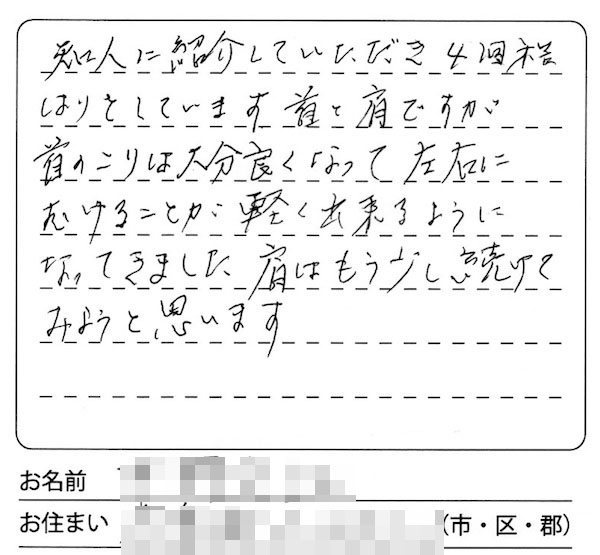 知人に紹介していただき4回程
はりをしています 首と肩ですが
首のこりは大分良くなって 左右に
むけることが軽く出来るように
なってきました 肩はもう少し続けて
みようと思います
お名前
お住まい (市・区・郡)